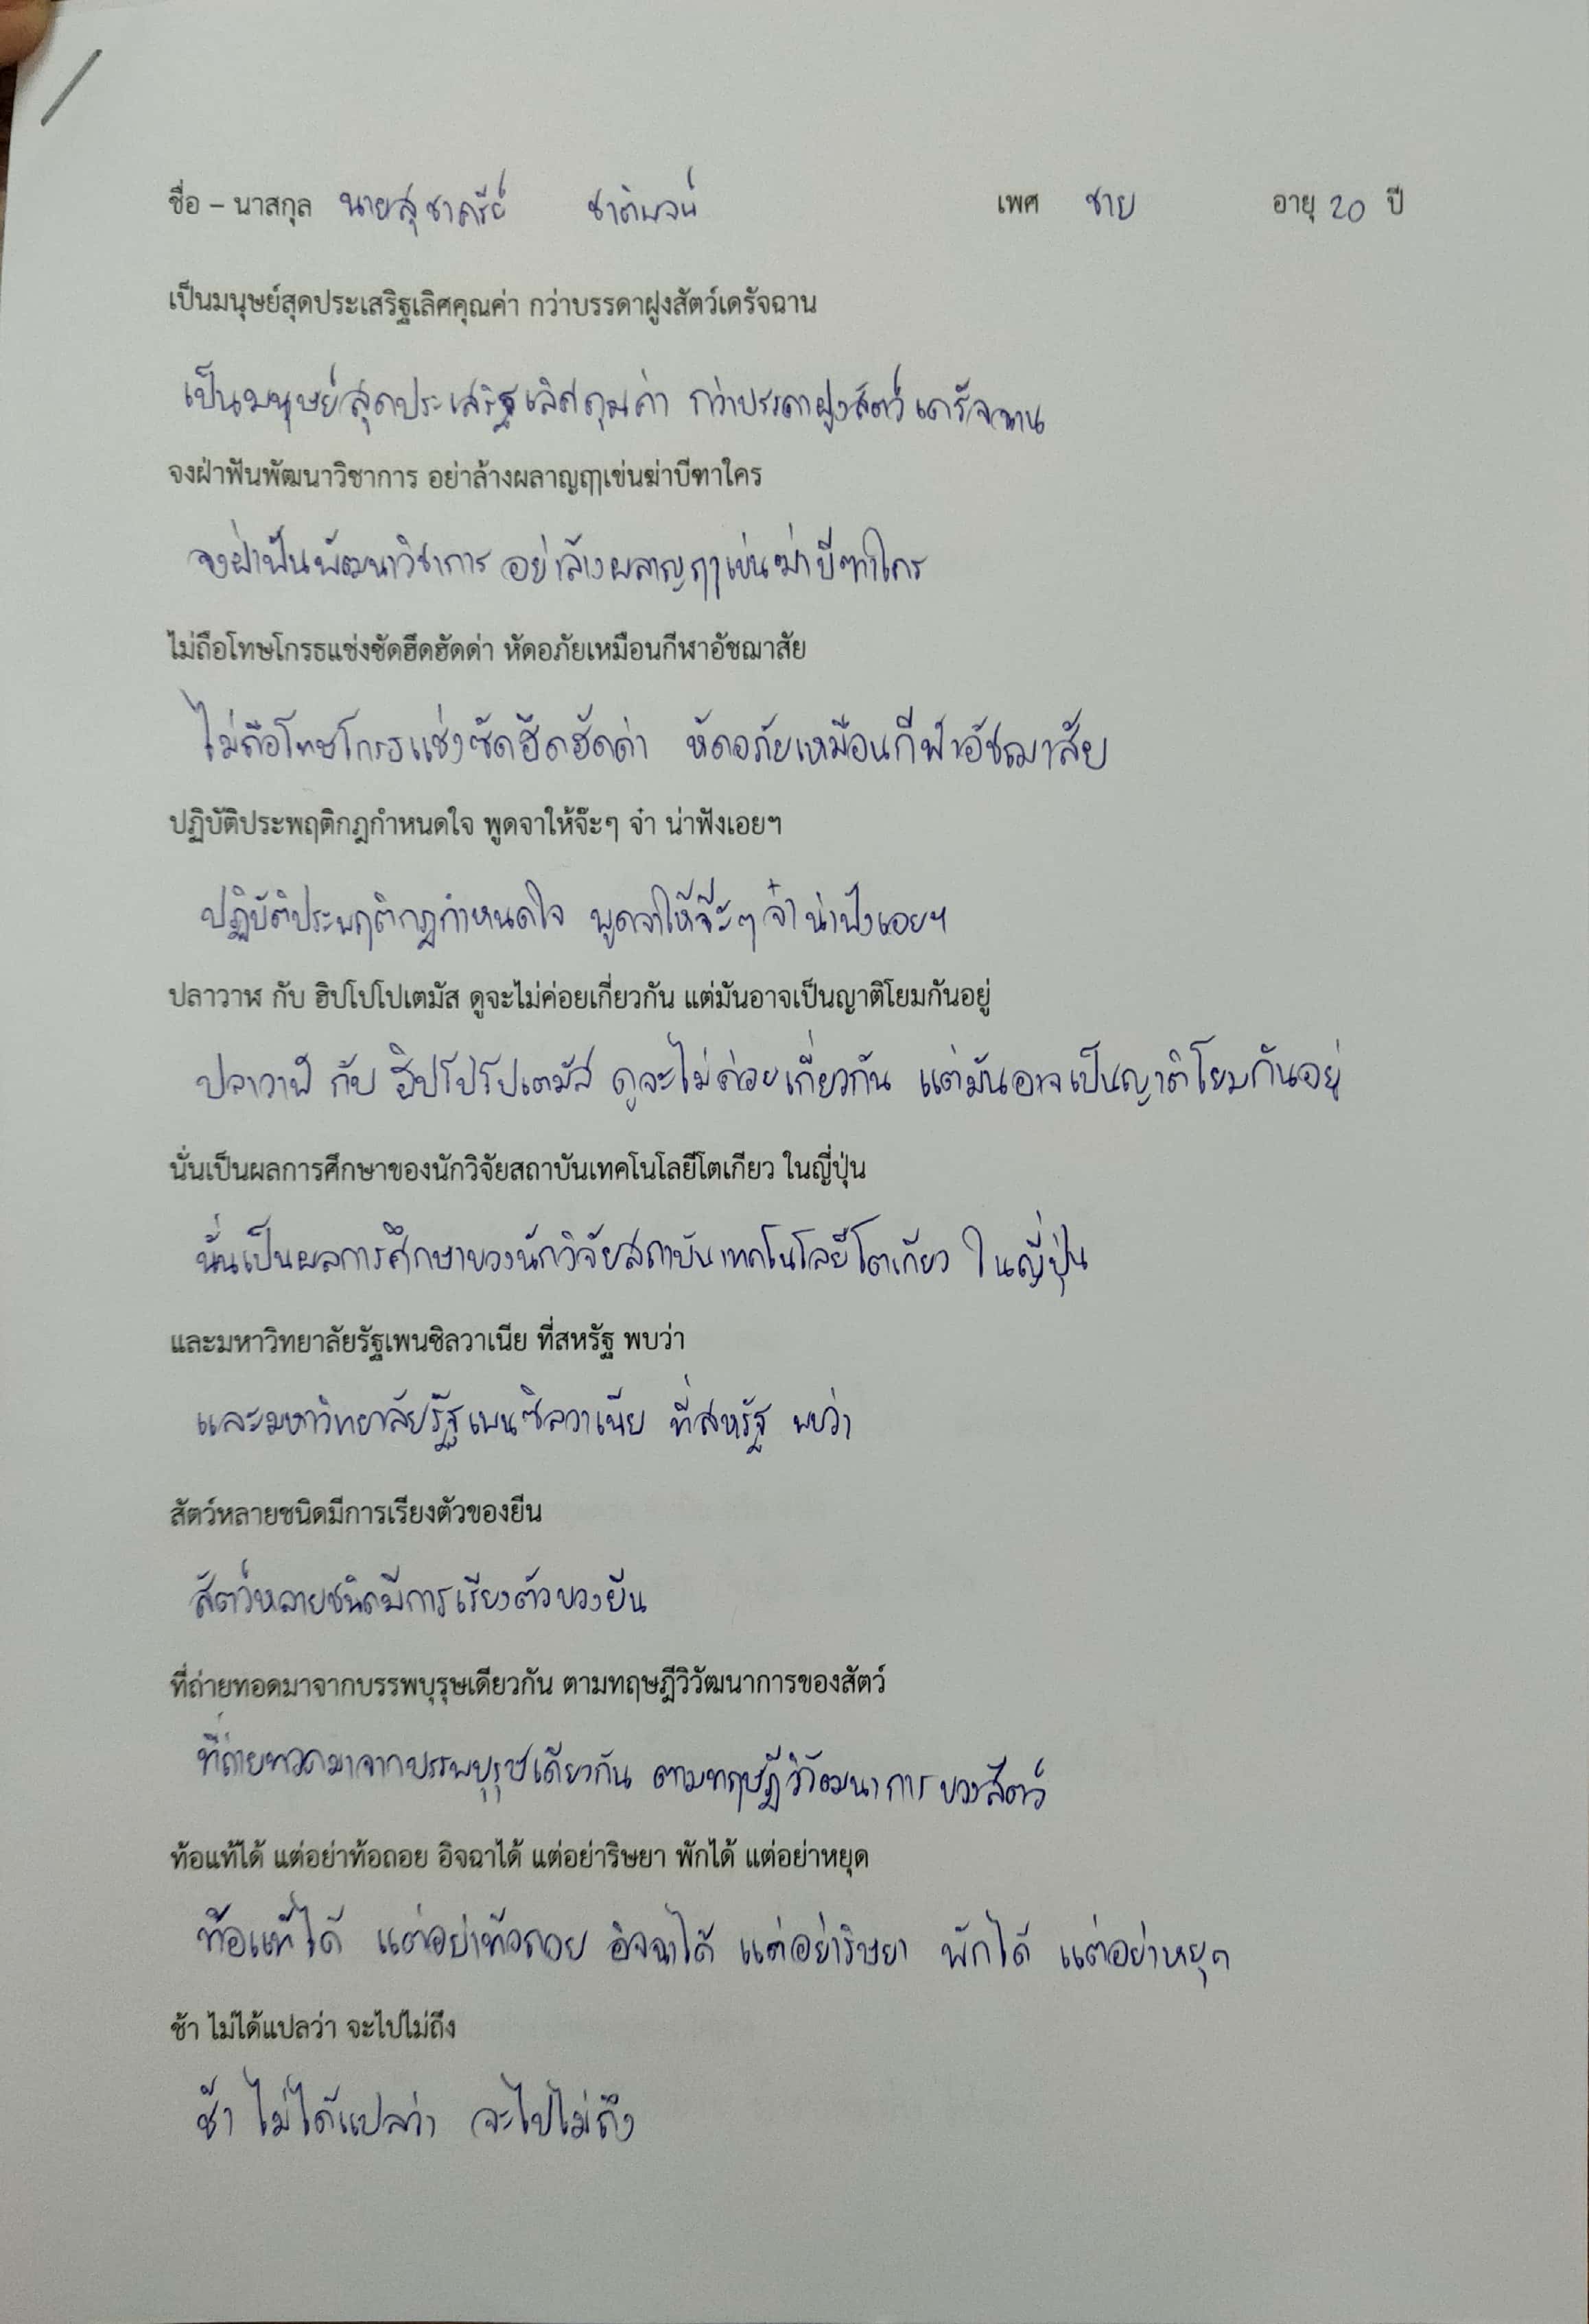 ชื่อ – นาสกุล นายสุชาครีย์ ชาติพจน์ เพศ ชาย อายุ 20 ปี
เป็นมนุษย์สุดประเสริฐเลิศคุณค่า กว่าบรรดาฝูงสัตว์เดรัจฉาน
เป็นมนุษย์สุดประเสริฐเลิศคุณค่า กว่าบรรดาฝูงสัตว์เดรัจฉาน
จงฝ่าฟันพัฒนาวิชาการ อย่าล้างผลาญฤๅเข่นฆ่าบีฑาใคร
จงฝ่าฟันพัฒนาวิชาการ อย่าล้างผลาญฤๅเข่นฆ่าบีฑาใคร
ไม่ถือโทษโกรธแช่งซัดฮึดฮัดด่า หัดอภัยเหมือนกีฬาอัชฌาสัย
ไม่ถือโทษโกรธแช่งซัดฮึดฮัดด่า หัดอภัยเหมือนกีฬาอัชฌาสัย
ปฏิบัติประพฤติกฎกำหนดใจ พูดจาให้จ๊ะๆ จ๋า น่าฟังเอยฯ
ปฏิบัติประพฤติกฎกำหนดใจ พูดจาให้จ๊ะๆ จ๋า น่าฟังเอยฯ
ปลาวาฬ กับ ฮิปโปโปเตมัส ดูจะไม่ค่อยเกี่ยวกัน แต่มันอาจเป็นญาติโยมกันอยู่
ปลาวาฬ กับ ฮิปโปโปเตมัส ดูจะไม่ค่อยเกี่ยวกัน แต่มันอาจเป็นญาติโยมกันอยู่
นั่นเป็นผลการศึกษาของนักวิจัยสถาบันเทคโนโลยีโตเกียว ในญี่ปุ่น
นั่นเป็นผลการศึกษาของนักวิจัยสถาบันเทคโนโลยีโตเกียว ในญี่ปุ่น
และมหาวิทยาลัยรัฐเพนซิลวาเนีย ที่สหรัฐ พบว่า
และมหาวิทยาลัยรัฐเพนซิลวาเนีย ที่สหรัฐ พบว่า
สัตว์หลายชนิดมีการเรียงตัวของยีน
สัตว์หลายชนิดมีการเรียงตัวของยีน
ที่ถ่ายทอดมาจากบรรพบุรุษเดียวกัน ตามทฤษฎีวิวัฒนาการของสัตว์
ที่ถ่ายทอดมาจากบรรพบุรุษเดียวกัน ตามทฤษฎีวิวัฒนาการของสัตว์
ท้อแท้ได้ แต่อย่าท้อถอย อิจฉาได้ แต่อย่าริษยา พักได้ แต่อย่าหยุด
ท้อแท้ได้ แต่อย่าท้อถอย อิจฉาได้ แต่อย่าริษยา พักได้ แต่อย่าหยุด
ช้า ไม่ได้แปลว่า จะไปไม่ถึง
ช้า ไม่ได้แปลว่า จะไปไม่ถึง